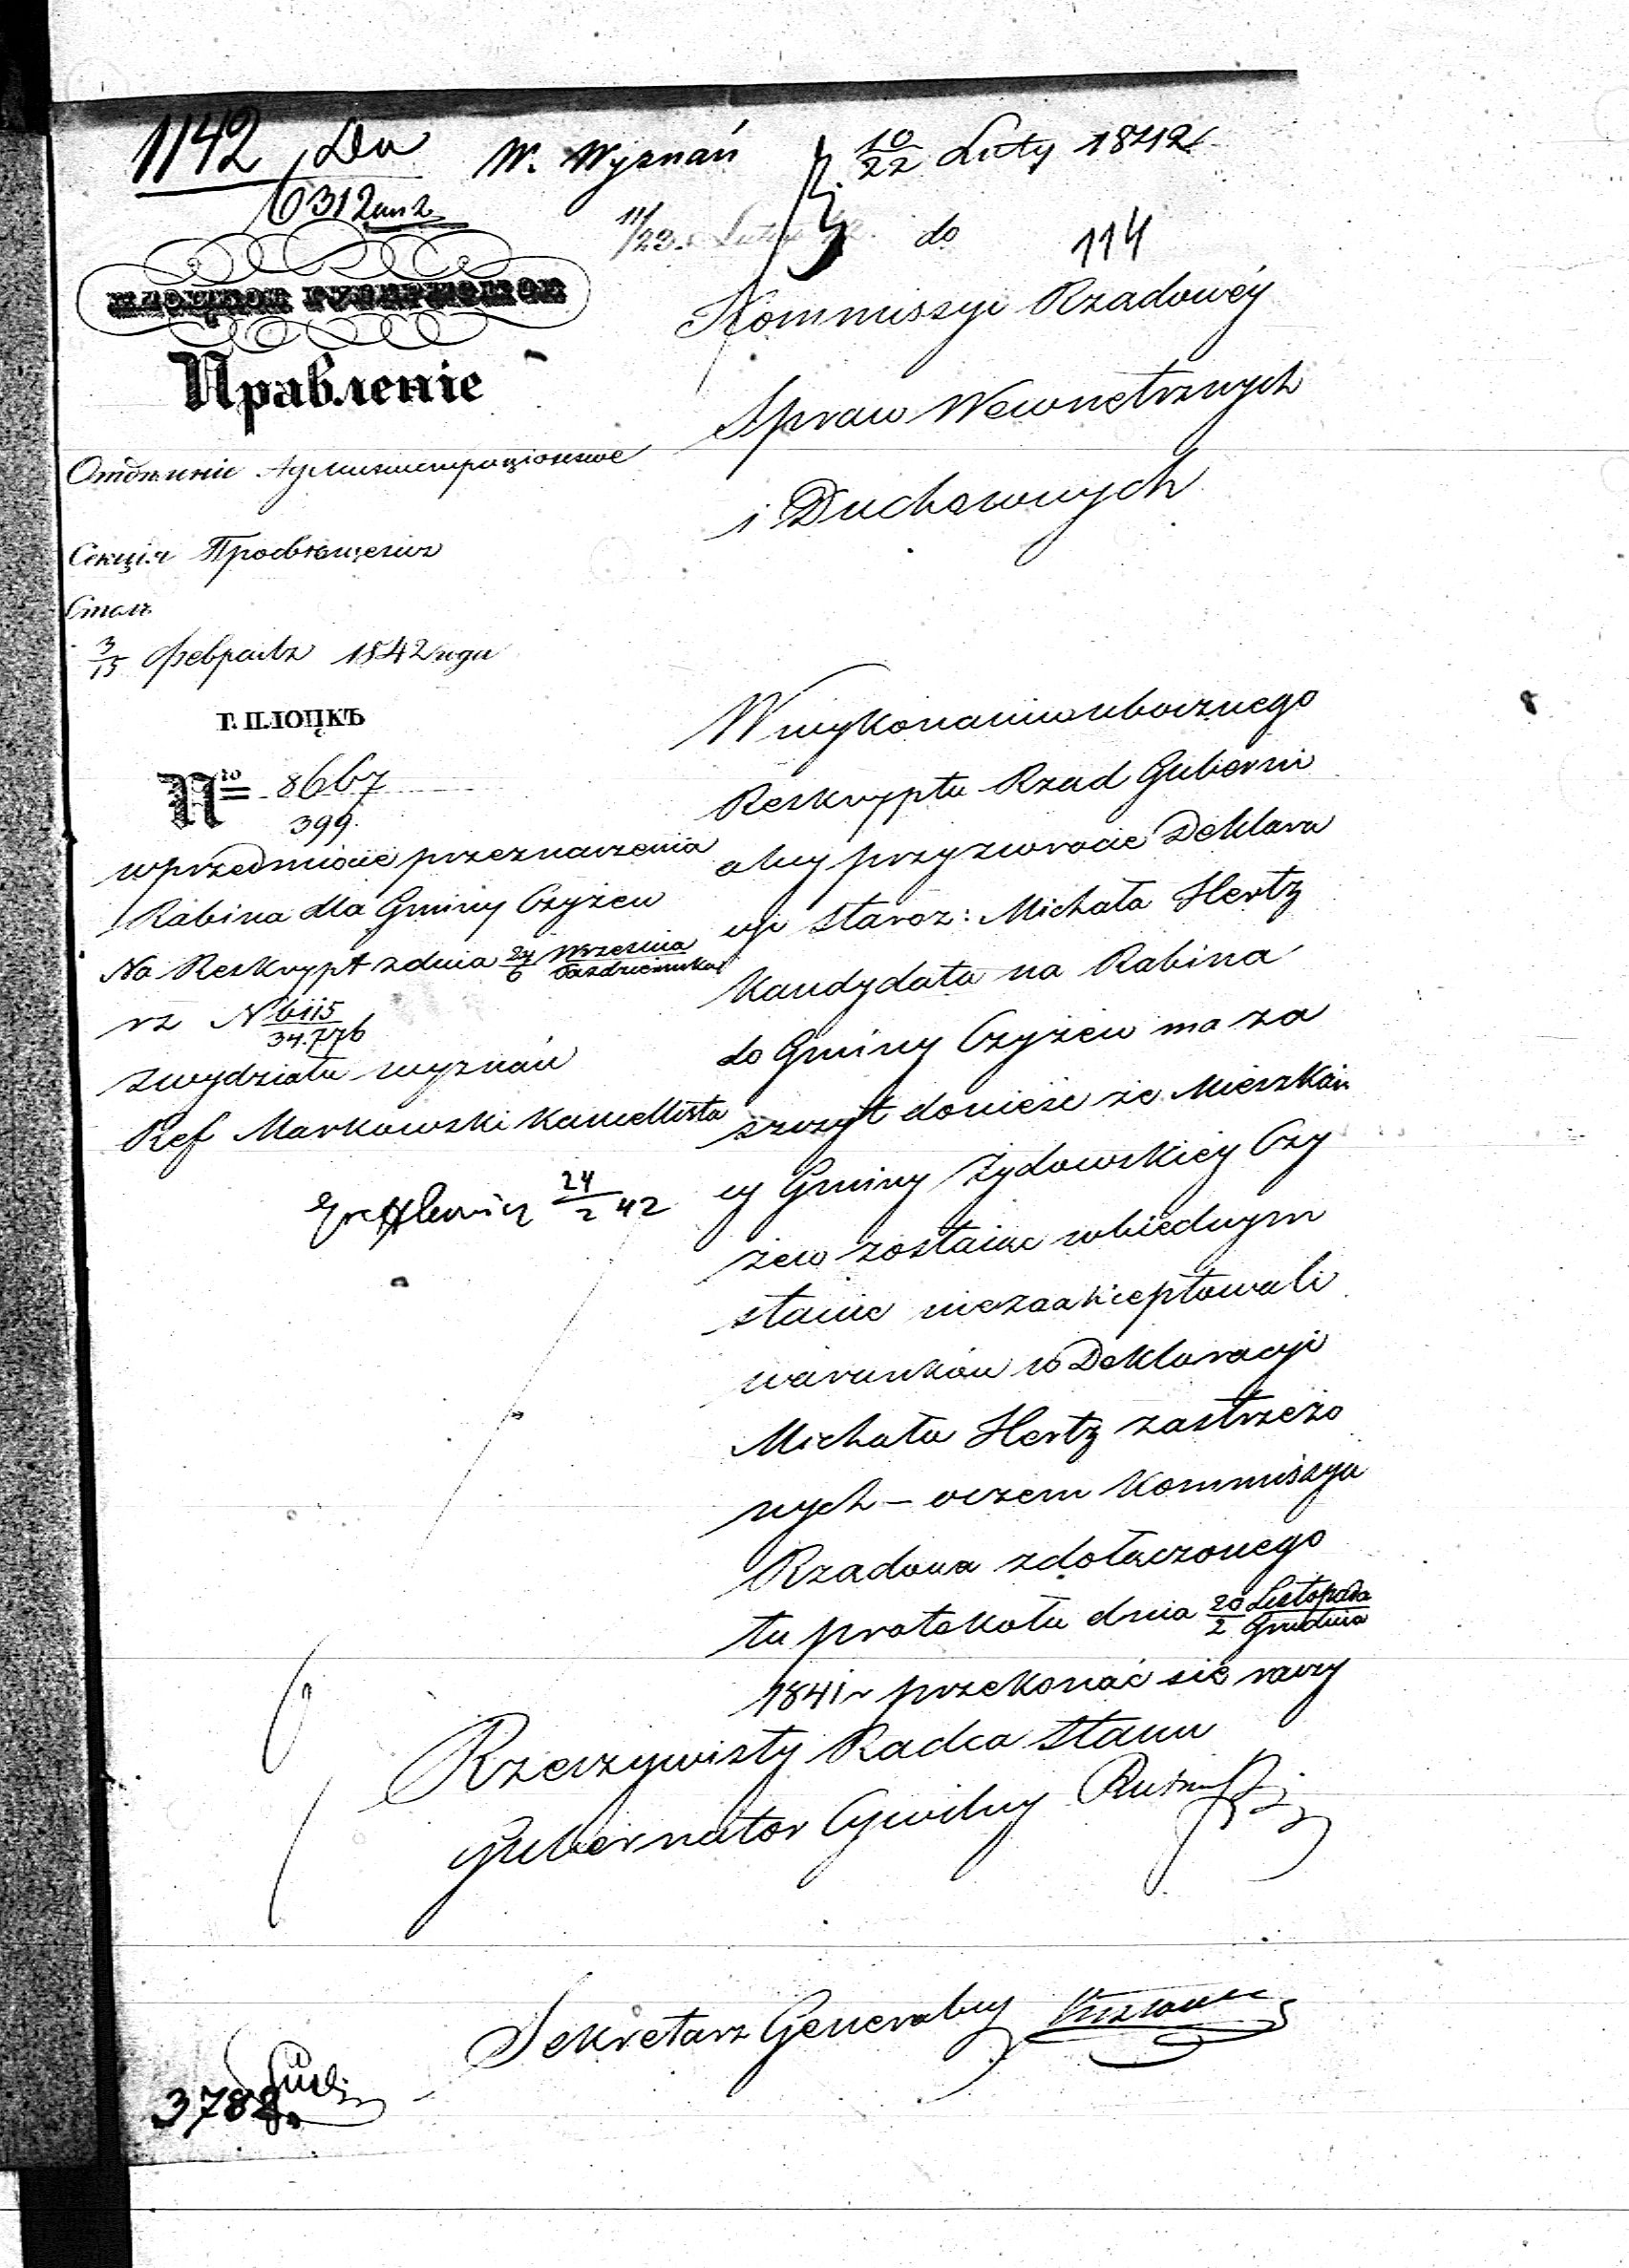 1142 Do W. Wyznań 10/22 Luty 1842
6312
11/23 Luty do 114
Плоцкое Губернское
Правленіе
Отдѣленіе Административное
Секція Просвѣщенія
Столъ
3/15 февраля 1842 года
Г. ПЛОЦКЪ
No 8667
399.
w przedmiocie przeznaczenia
Rabina dla Gminy Czyżew
Na Reskrypt z dnia 24/6 Września/Października
rz N 6115/34.776
z wydziału wyznań
Ref Markowski Kancellista
24/2 42
Kommissyi Rządowéy
Spraw Wewnętrznych
i Duchownych
W wykonaniu ubocznego
Reskryptu Rząd Guberni
alny przy zwrocie Deklara
cyi Staroz: Michała Hertz
Kandydata na Rabina
do Gminy Czyżew ma za
szczyt donieść że Mieszkań
cy Gminy Żydowskiéy Czy
żew zostaiąc w biednym
stanie niezaakceptowali
warunków w Deklaracyi
Michała Hertz zastrzeżo
nych – o czem Kommissya
Rządowa z dołączonego
tu protokołu dnia 20/2 Listopada/Grudnia
1841 r przekonać się raczy
Rzeczywisty Radca Stanu
Gubernator Cywilny
Sekretarz Generalny
3788